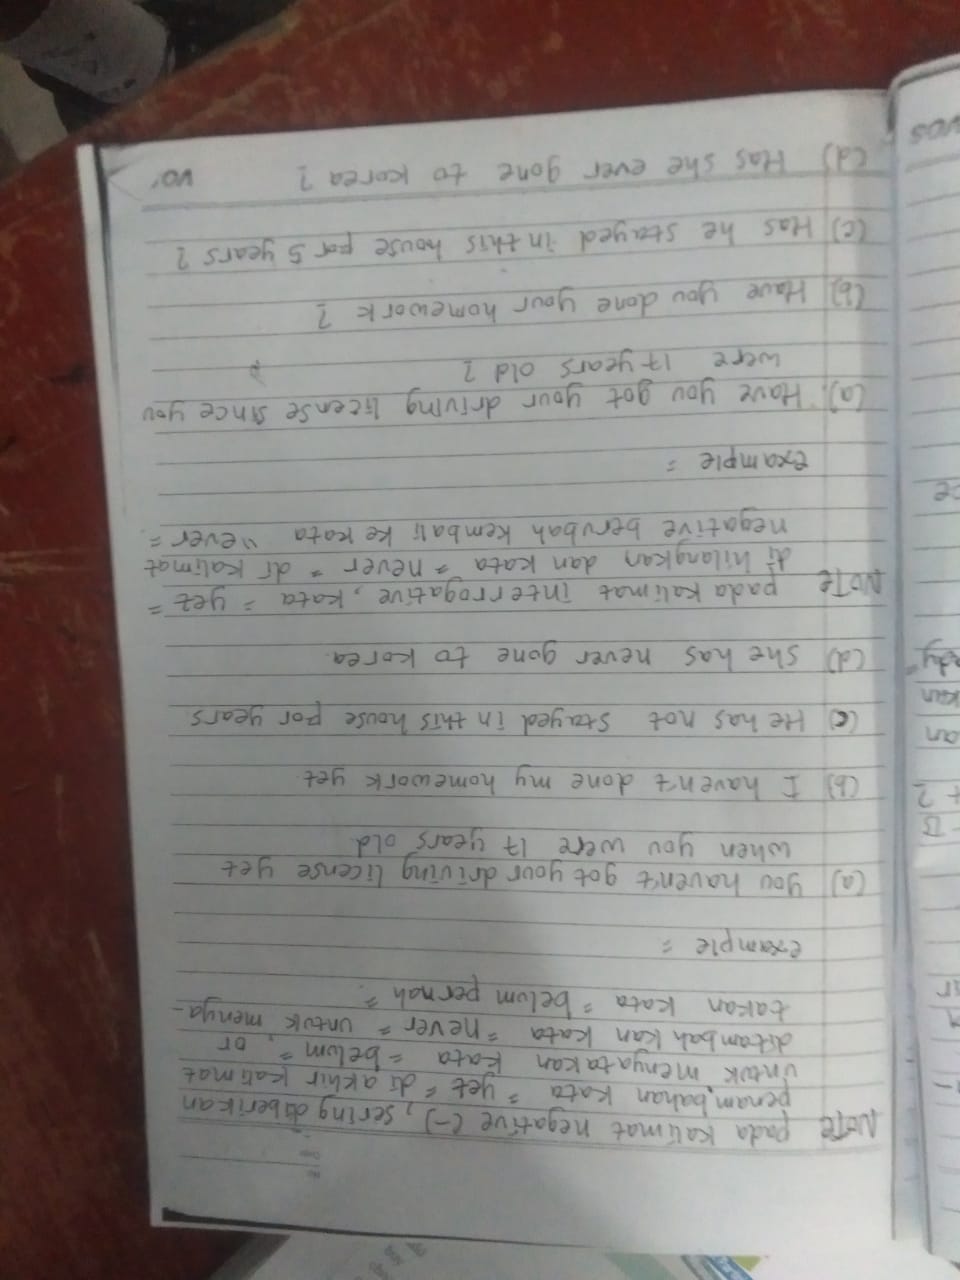 No
Date
NOTE pada kalimat negative (-), sering diberikan
penambahan kata "yet" di akhir kalimat
untuk menyatakan kata "belum", or
ditambah kan kata "never" untuk menya-
takan kata "belum pernah".
example =
(a) you haven't got your driving license yet
when you were 17 years old
(b) I haven't done my homework yet.
(c) He has not stayed in this house for years.
(d) she has never gone to korea.
NOTE pada kalimat interrogative, kata "yet"
di hilangkan dan kata "never" dr kalimat
negative berubah kembali ke kata "ever".
example =
(a) Have you got your driving license since you
were 17 years old ?
(b) Have you done your homework ?
(c) Has he stayed in this house for 5 years ?
(d) Has she ever gone to korea ?